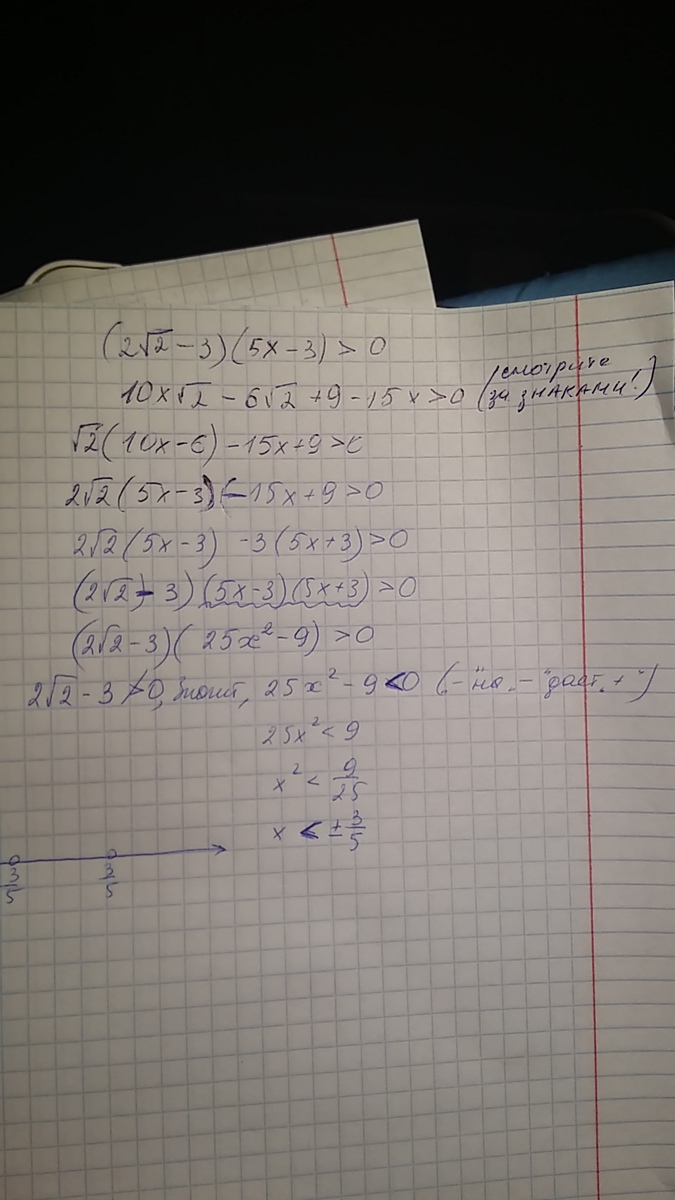 (2√2 − 3)(5x − 3) > 0
10x√2 − 6√2 + 9 − 15x > 0 (смотрите за знаками!)
√2(10x − 6) − 15x + 9 > 0
2√2(5x − 3) − 15x + 9 > 0
2√2(5x − 3) − 3(5x + 3) > 0
(2√2 − 3)(5x − 3)(5x + 3) > 0
(2√2 − 3)(25x² − 9) > 0
2√2 − 3 ≯ 0, значит, 25x² − 9 < 0 („−" на „−" даст „+")
25x² < 9
x² < 9/25
x < ± 3/5
3/5 3/5